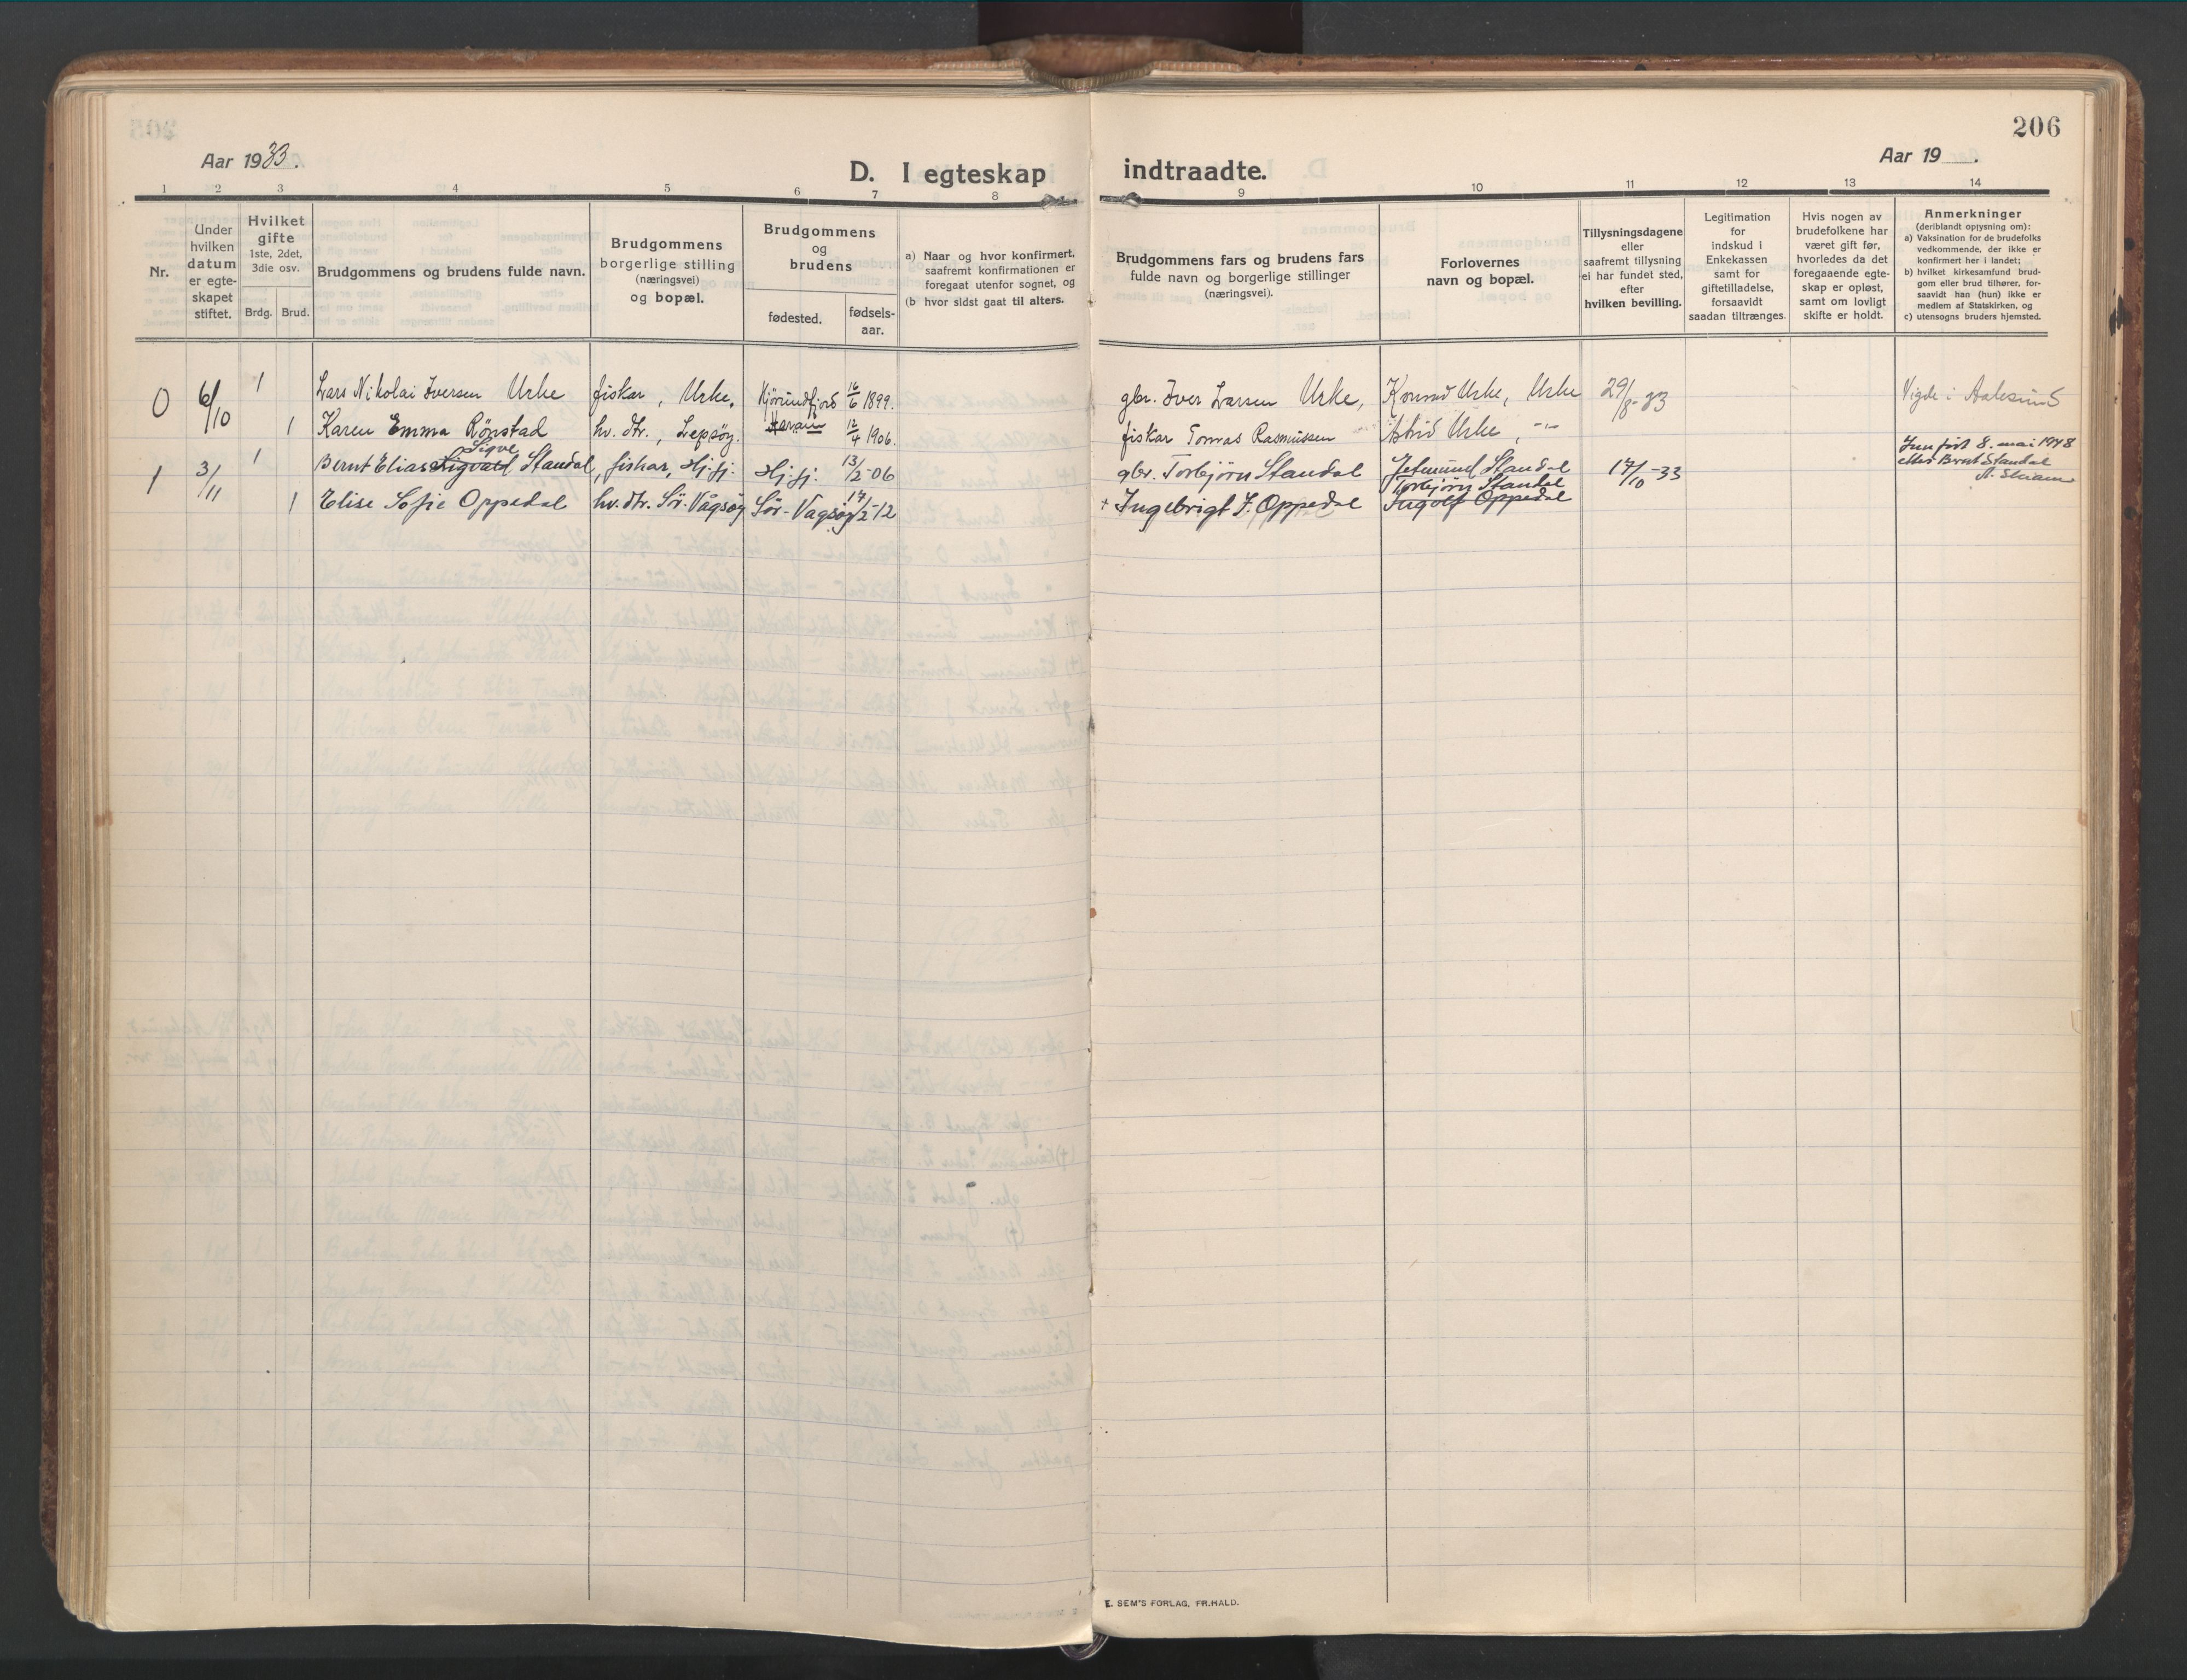 206
Aar 1933.
Aar 19 .
D. I egteskap indtraadte.
1 2 3 4 5 6 7 8 9 10 11 12 13 14
Nr.
Under
hvilken
datum
er egte-
skapet
stiftet.
Hvilket
gifte
1ste, 2det,
3die osv.
Brdg. Brud.
Brudgommens og brudens fulde navn.
Brudgommens
borgerlige stilling
(næringsvei)
og bopæl.
Brudgommens
og
brudens
fødested.
fødsels-
aar.
a) Naar og hvor konfirmert,
saafremt konfirmationen er
foregaat utenfor sognet, og
(b hvor sidst gaat til alters.
Brudgommens fars og brudens fars
fulde navn og borgerlige stillinger
(næringsvei).
Forlovernes
navn og bopæl.
Tillysningsdagene
eller
saafremt tillysning
ei har fundet sted,
efter
hvilken bevilling.
Legitimation
for
indskud i
Enkekassen
samt for
giftetilladelse,
forsaavidt
saadan tiltrænges.
Hvis nogen av
brudefolkene har
været gift før,
hvorledes da det
foregaaende egte-
skap er opløst,
samt om lovligt
skifte er holdt.
Anmerkninger
(deriblandt oplysning om):
a) Vaksination for de brudefolks
vedkommende, der ikke er
konfirmert her i landet;
b) hvilket kirkesamfund brud-
gom eller brud tilhører, for-
saavidt han (hun) ikke er
medlem af Statskirken, og
c) utensogns bruders hjemsted.
0 6/10 1 Lars Nikolai Iversen Urke fiskar, Urke. Hjørundfjord 16/6 1899. gbr. Iver Larsen Urke, Konrad Urke, Urke 29/8-33 Vigde i Aalesund
1 Karen Emma Rönstad hv. dtr., Lepsøy. Haram 12/4 1906. fiskar Tomas Rasmussen Astrid Urke, -"-
1 3/11 1 Bernt Elias Sigvald Sigve Standal, fiskar, Hj.fj. Hj.fj. 13/2-06 gbr. Torbjørn Standal Jetmund Standal 17/10-33
8. mai 1948
Bernt Standal
1 Elise Sofie Oppedal hv. dtr. Sör-Vågsøy Sör-Vagsøy 17/2-12 + Ingebrigt J. Oppedal Torbjörn Standal
Ingolf Oppedal
E. SEM'S FORLAG, FR.HALD.